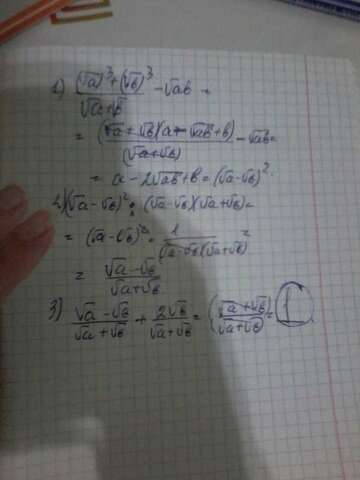 1) ((√a)³+(√b)³)/(√a+√b) - √ab =
= ((√a+√b)(a-√ab+b))/(√a+√b) - √ab =
= a-2√ab+b=(√a-√b)².
2) (√a-√b)² : (√a-√b)(√a+√b)=
= (√a-√b)² · 1/((√a-√b)(√a+√b)) =
= (√a-√b)/(√a+√b)
3) (√a-√b)/(√a+√b) + 2√b/(√a+√b) = (√a+√b)/(√a+√b) = 1